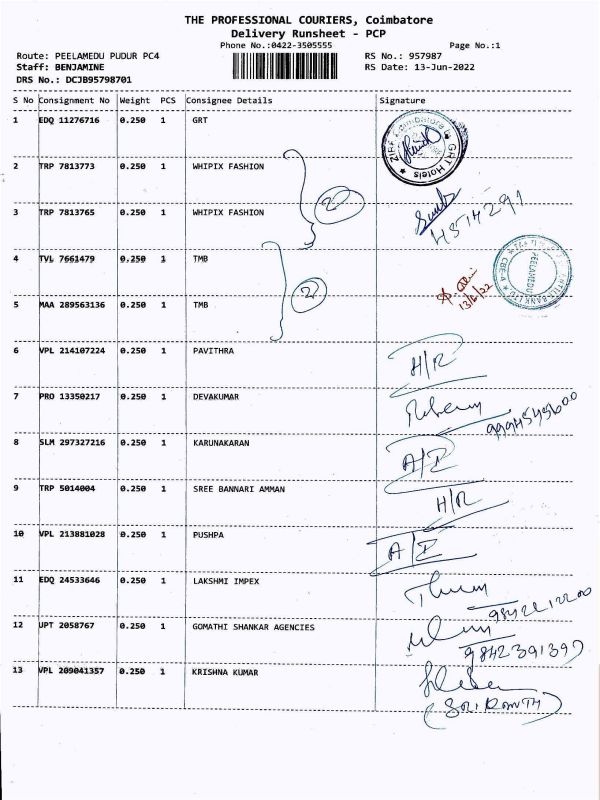 THE PROFESSIONAL COURIERS, Coimbatore
Delivery Runsheet - PCP
Phone No.:0422-3505555 Page No.:1
Route: PEELAMEDU PUDUR PC4 RS No.: 957987
Staff: BENJAMINE RS Date: 13-Jun-2022
DRS No.: DCJB95798701
S No Consignment No Weight PCS Consignee Details Signature
1 EDQ 11276716 0.250 1 GRT
GRT Hotels
2 TRP 7813773 0.250 1 WHIPIX FASHION
2
3 TRP 7813765 0.250 1 WHIPIX FASHION
4 TVL 7661479 0.250 1 TMB
PEELAMEDU
2
5 MAA 289563136 0.250 1 TMB
13/6/22
6 VPL 214107224 0.250 1 PAVITHRA
H/R
7 PRO 13350217 0.250 1 DEVAKUMAR
8 SLM 297327216 0.250 1 KARUNAKARAN
A/I
9 TRP 5014004 0.250 1 SREE BANNARI AMMAN
H/R
10 VPL 213881028 0.250 1 PUSHPA
A/I
11 EDQ 24533646 0.250 1 LAKSHMI IMPEX
12 UPT 2058767 0.250 1 GOMATHI SHANKAR AGENCIES
9842391397
13 VPL 209041357 0.250 1 KRISHNA KUMAR